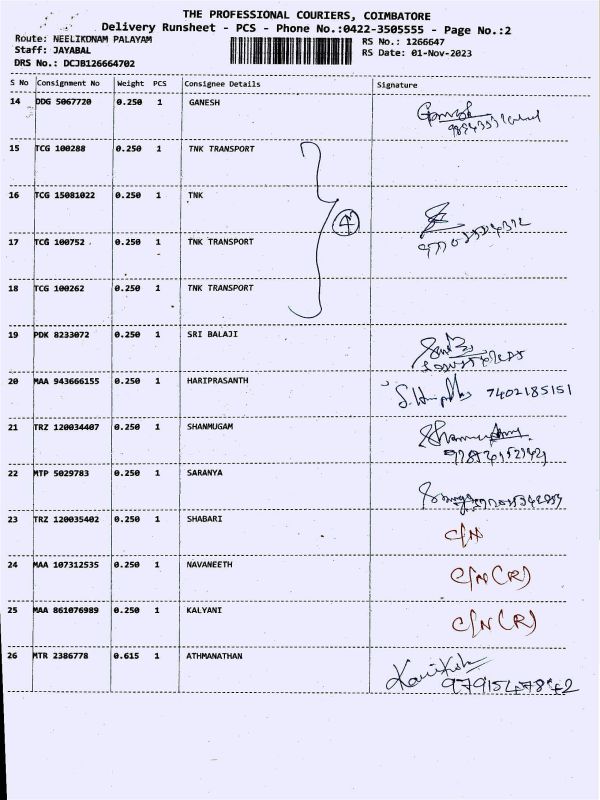 THE PROFESSIONAL COURIERS, COIMBATORE
Delivery Runsheet - PCS - Phone No.:0422-3505555 - Page No.:2
Route: NEELIKONAM PALAYAM
RS No.: 1266647
Staff: JAYABAL
RS Date: 01-Nov-2023
DRS No.: DCJB126664702
S No Consignment No Weight PCS Consignee Details Signature
14 DDG 5067720 0.250 1 GANESH
15 TCG 100288 0.250 1 TNK TRANSPORT
16 TCG 15081022 0.250 1 TNK
4
17 TCG 100752 0.250 1 TNK TRANSPORT
18 TCG 100262 0.250 1 TNK TRANSPORT
19 PDK 8233072 0.250 1 SRI BALAJI
20 MAA 943666155 0.250 1 HARIPRASANTH 7402185151
21 TRZ 120034407 0.250 1 SHANMUGAM
22 MTP 5029783 0.250 1 SARANYA
23 TRZ 120035402 0.250 1 SHABARI C/N
24 MAA 107312535 0.250 1 NAVANEETH C/N (R)
25 MAA 861076989 0.250 1 KALYANI C/N (R)
26 MTR 2386778 0.615 1 ATHMANATHAN